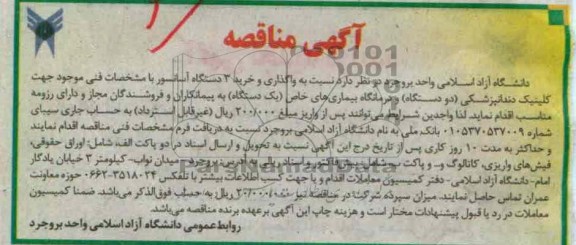 آگهی مناقصه
دانشگاه آزاد اسلامی واحد بروجرد در نظر دارد نسبت به واگذاری و خرید ۳ دستگاه آسانسور با مشخصات فنی موجود جهت
کلینیک دندانپزشکی (دو دستگاه) و درمانگاه بیماری‌های خاص (یک دستگاه) به پیمانکاران و فروشندگان مجاز و دارای رزومه
مناسب اقدام نماید. لذا واجدین شرایط می‌توانند پس از واریز مبلغ ۳۰۰/۰۰۰ ریال (غیرقابل استرداد) به حساب جاری سیبای
شماره ۰۱۰۵۳۷۰۵۳۷۰۰۹ بانک ملی به نام دانشگاه آزاد اسلامی بروجرد نسبت به دریافت فرم مشخصات فنی مناقصه اقدام نمایند
و حداکثر به مدت ۱۰ روز کاری پس از تاریخ درج این آگهی نسبت به تحویل و ارسال اسناد در دو پاکت الف، شامل: اوراق حقوقی،
فیش‌های واریزی، کاتالوگ و.. و پاکت ب شامل: پیش فاکتور و اسناد مالی به آدرس: بروجرد - میدان نواب - کیلومتر ۳ خیابان یادگار
امام - دانشگاه آزاد اسلامی - دفتر کمیسیون معاملات اقدام و یا جهت کسب اطلاعات بیشتر با تلفکس ۳۵۱۸۰۲۴-۰۶۶۲ حوزه معاونت
عمران تماس حاصل نمایند. میزان سپرده شرکت در مناقصه نیز ریال به حساب فوق‌الذکر می‌باشد. ضمنا کمیسیون
معاملات در رد یا قبول پیشنهادات مختار است و هزینه چاپ این آگهی برعهده برنده مناقصه می‌باشد.
روابط عمومی دانشگاه آزاد اسلامی واحد بروجرد